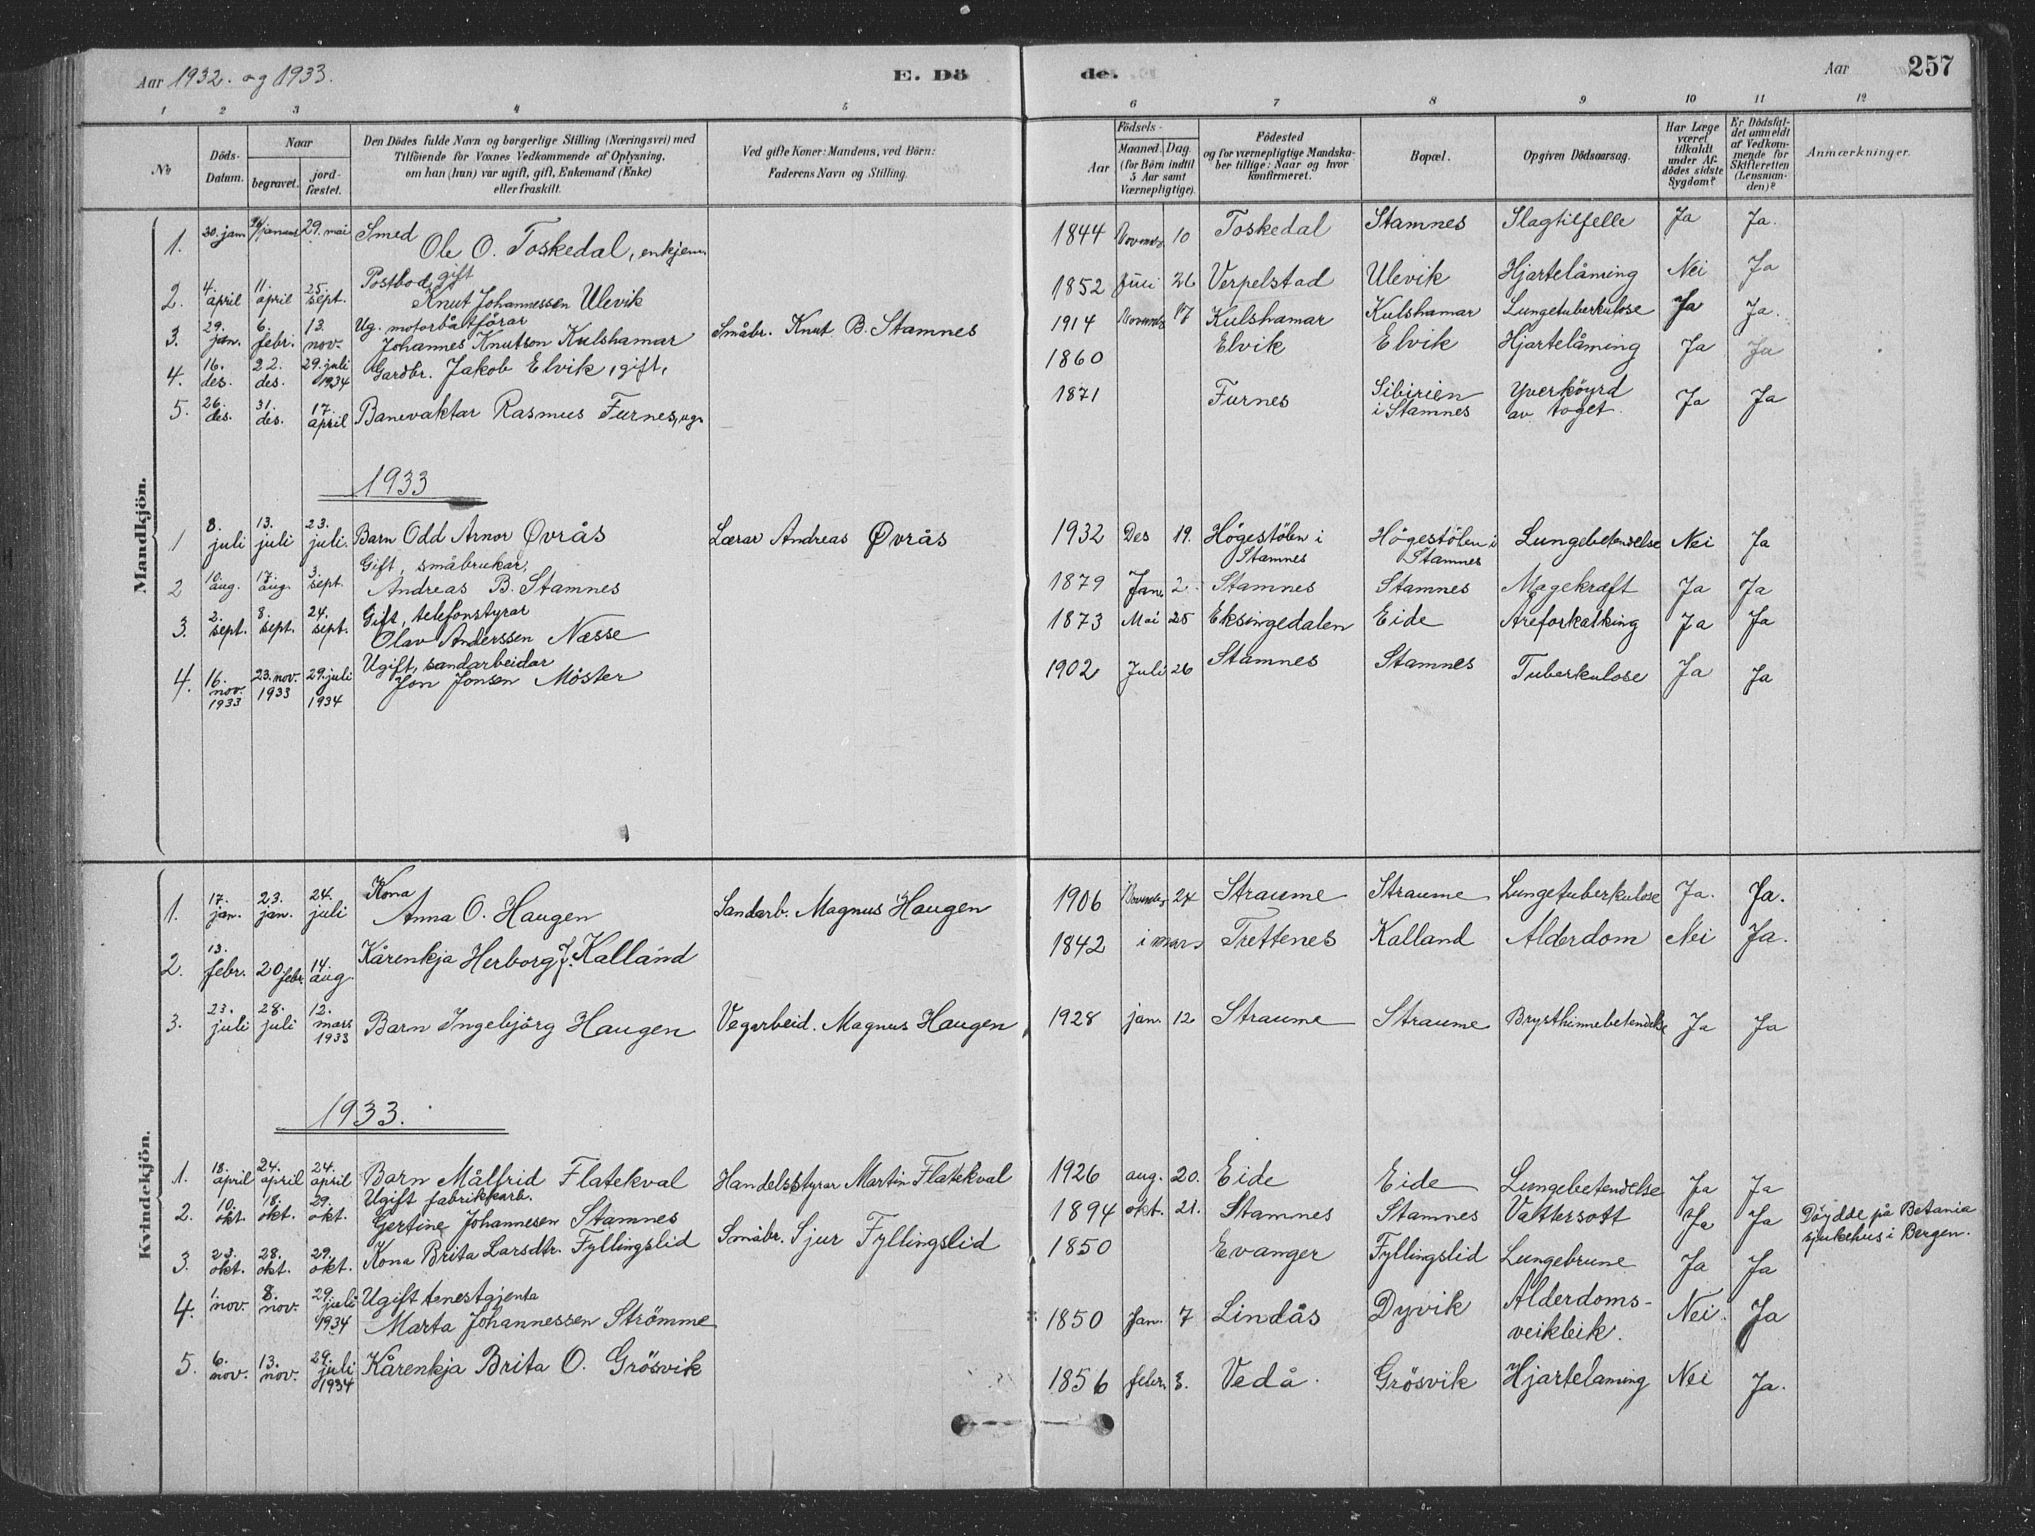 Aar 1932. og 1933.
E. Dö
de.
Aar
257
1 2 3 4 5 6 7 8 9 10 11 12
No
Döds-
Datum.
Naar
begravet.
jord-
fæstet.
Den Dödes fulde Navn og borgerlige Stilling (Næringsvei) med
Tilföiende for Voxnes Vedkommende af Oplysning,
om han (hun) var ugift, gift, Enkemand (Enke)
eller fraskilt.
Ved gifte Koner: Mandens, ved Börn:
Faderens Navn og Stilling.
Aar
Födsels-
Maaned. Dag.
(for Börn indtil
5 Aar samt
Værnepligtige).
Födested
og for værnepligtige Mandska-
ber tillige: Naar og hvor
konfirmeret.
Bopæl.
Opgiven Dödsaarsag.
Har Læge
været
tilkaldt
under Af-
dödes sidste
Sygdom?
Er Dödsfal-
det anmeldt
af Vedkom-
mende for
Skifteretten
(Lensman-
den)?
Anmærkninger.
Mandkjön.
1. 30. jan. januar 29. mai Smed
Ole O. Toskedal, enkjem. 1844 Novemb. 10 Toskedal Stamnes Slagtilfelle Ja Ja.
2. 4. april 11. april 25. sept. Postbod, gift
Knut Johannessen Ulevik 1852 Juni 26 Verpelstad Ulevik Hjartelåming Nei Ja
3. 29. jan. 6. febr. 13. nov. Ug. motorbåtförar
Johannes Knutson Kulshamar Småbr. Knut B. Stamnes 1914 Novemb. 17 Kulshamar Kulshamar Lungetuberkulose Ja Ja.
4. 16. des. 22. des. 29. juli 1934 Gardbr. Jakob Elvik, gift, 1860 Elvik Elvik Hjartelåming Ja Ja
5. 26. des. 31. des. 17. april Banevaktar Rasmus Furnes, ug. 1871 Furnes Sibirien i Stamnes Yverköyrd av toget. Ja Ja
1933
1 8. juli 13. juli 23. juli. Barn Odd Arnor Øvrås Lærar Andreas Øvrås 1932 Des 19. Högestölen i Stamnes Högestölen i Stamnes Lungebetendelse Nei Ja
2 10. aug. 17. aug. 3. sept. Gift, småbrukar,
Andreas B. Stamnes 1879 Jan. 2. Stamnes Stamnes Magekræft Ja Ja
3. 2. sept. 8. sept. 24. sept. Gift, telefonstyrar
Olav Anderssen Næsse 1873 Mai 25 Eksingedalen Eide Areforkalking Ja Ja
4. 16. nov. 1933 23. nov. 1933 29. juli 1934 Ugift, sandarbeidar
Jon Jonsen Möster 1902 Juli 26 Stamnes Stamnes Tuberkulose Ja Ja
Kvindekjön.
1. 17. jan. 23. jan. 24. juli Kona
Anna O. Haugen Sandarb. Magnus Haugen 1906 Novemb. 24 Straume Straume Lungetuberkulose Ja. Ja.
2. 13. febr. 20 febr. 14. aug. Kårenkja Herborg J. Kalland 1842 i mars Trettenes Kalland Alderdom Nei Ja.
3. 23. juli 28. juli 12. mars 1933 Barn Ingebjörg Haugen Vegarbeid. Magnus Haugen 1928 jan. 12 Straume Straume Brysthinnebetendelse Ja Ja
1933.
1. 18. april 24. april 24. april Barn Målfrid Flatekval Handelsstyrar Martin Flatekval 1926 aug. 20. Eide Eide Lungebetendelse Ja Ja
2. 10. okt. 18. okt. 29. okt. Ugift fabrikkarb.
Gertine Johannesen Stamnes 1894 okt. 21. Stamnes Stamnes Vattersott Ja Ja Döydde på Betania sjukehus i Bergen.
3. 23. okt. 28. okt. 29. okt. Kona Brita Larsdtr. Fyllingslid Småbr. Sjur Fyllingslid 1850 Evanger Fyllingslid Lungebrune Ja Ja
4. 1. nov. 8. nov. 29. juli 1934 Ugift tenestgjenta
Marta Johannessen Strömme 1850 Jan. 7 Lindås Dyvik Alderdoms-veikleik. Nei. Ja
5. 6. nov. 13. nov. 29. juli 1934 Kårenkja Brita O. Grösvik 1856 febr. 3. Vedå. Grösvik Hjartelaming Nei Ja.